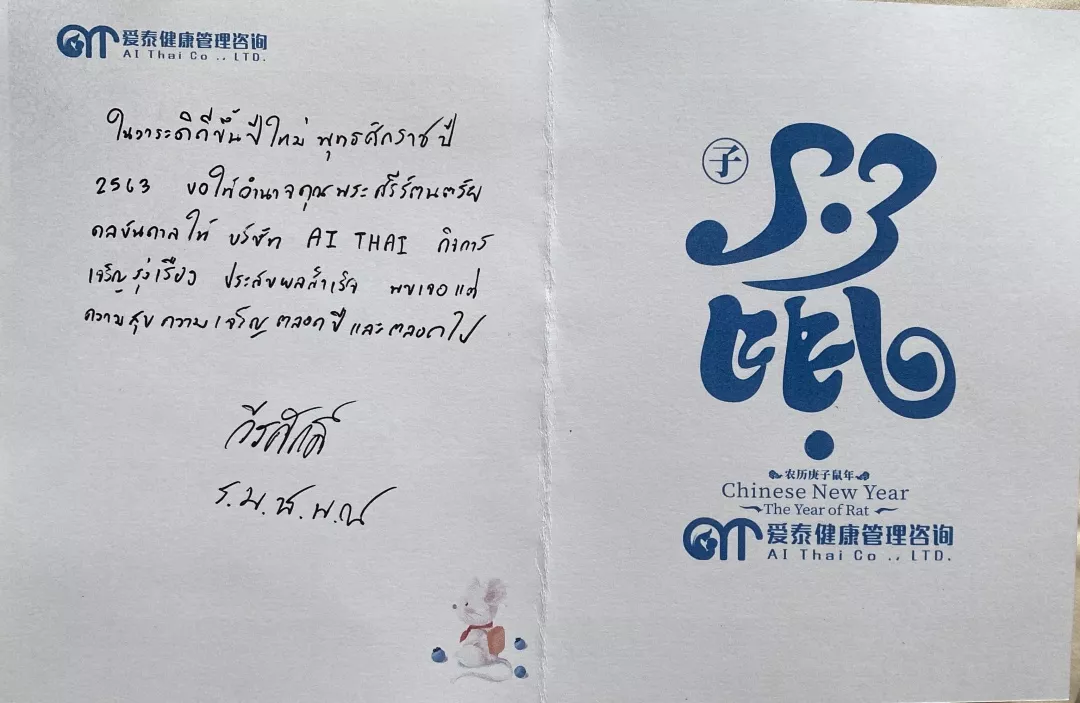 爱泰健康管理咨询
AI Thai Co ., LTD.
ในวาระดิถีขึ้นปีใหม่ พุทธศักราช ปี
2563 ขอให้อำนาจคุณพระศรีรัตนตรัย
ดลบันดาลให้ บริษัท AI THAI กิจการ
เจริญรุ่งเรือง ประสบผลสำเร็จ พบเจอแต่
ความสุข ความเจริญ ตลอดปี และตลอดไป
วีรศักดิ์
子
鼠
农历庚子鼠年
Chinese New Year
The Year of Rat
爱泰健康管理咨询
AI Thai Co ., LTD.